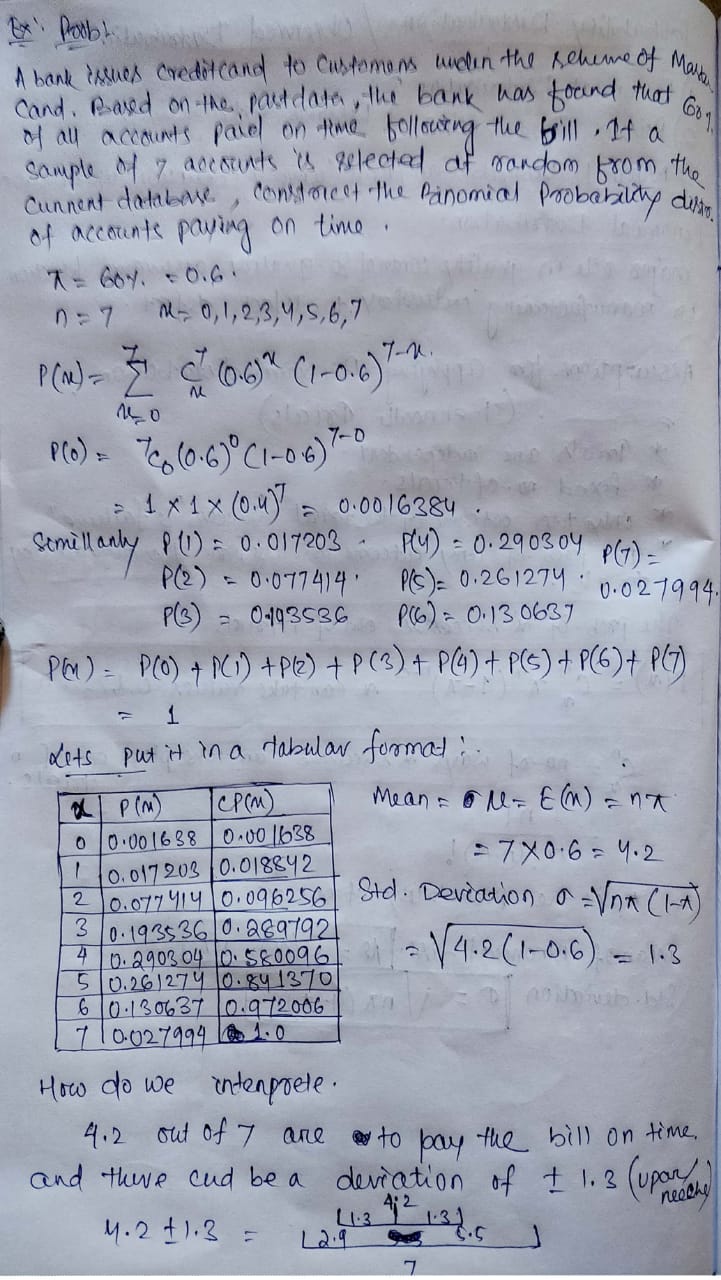 Ex: Prob:
A bank issues Creditcand to Customens unden the scheme of Master
Cand. Based on the past data, the bank has found that 60%
of all accounts paid on time following the bill. If a
sample of 7 accounts is selected at random from the
cunnent database, constrcet the Binomial Probability distn.
of accounts paying on time.
π = 60% = 0.6.
n = 7 x = 0,1,2,3,4,5,6,7
P(x) = 7 Σ x=0 7Cx (0.6)^x (1-0.6)^7-x.
P(0) = 7C0 (0.6)^0 (1-0.6)^7-0
= 1 x 1 x (0.4)^7 = 0.0016384.
Semillanly P(1) = 0.017203 P(4) = 0.290304 P(7) =
P(2) = 0.077414 P(5) = 0.261274 0.027994.
P(3) = 0.193536 P(6) = 0.130637
P(x) = P(0) + P(1) + P(2) + P(3) + P(4) + P(5) + P(6) + P(7)
= 1
Lets put it in a tabular format:.
x P(x) CP(x)
0 0.001638 0.001638
1 0.017203 0.018842
2 0.077414 0.096256
3 0.193536 0.289792
4 0.290304 0.580096
5 0.261274 0.841370
6 0.130637 0.972006
7 0.027994 1.0
Mean = μ = E(x) = nπ
= 7 X 0.6 = 4.2
Std. Deviation σ = √nπ (1-π)
= √4.2 (1-0.6) = 1.3
How do we intenprete.
4.2 out of 7 are to pay the bill on time.
and there cud be a deviation of ± 1.3 (upar/neeche)
4.2
1.3 1.3
4.2 ± 1.3 = 2.9 5.5
7